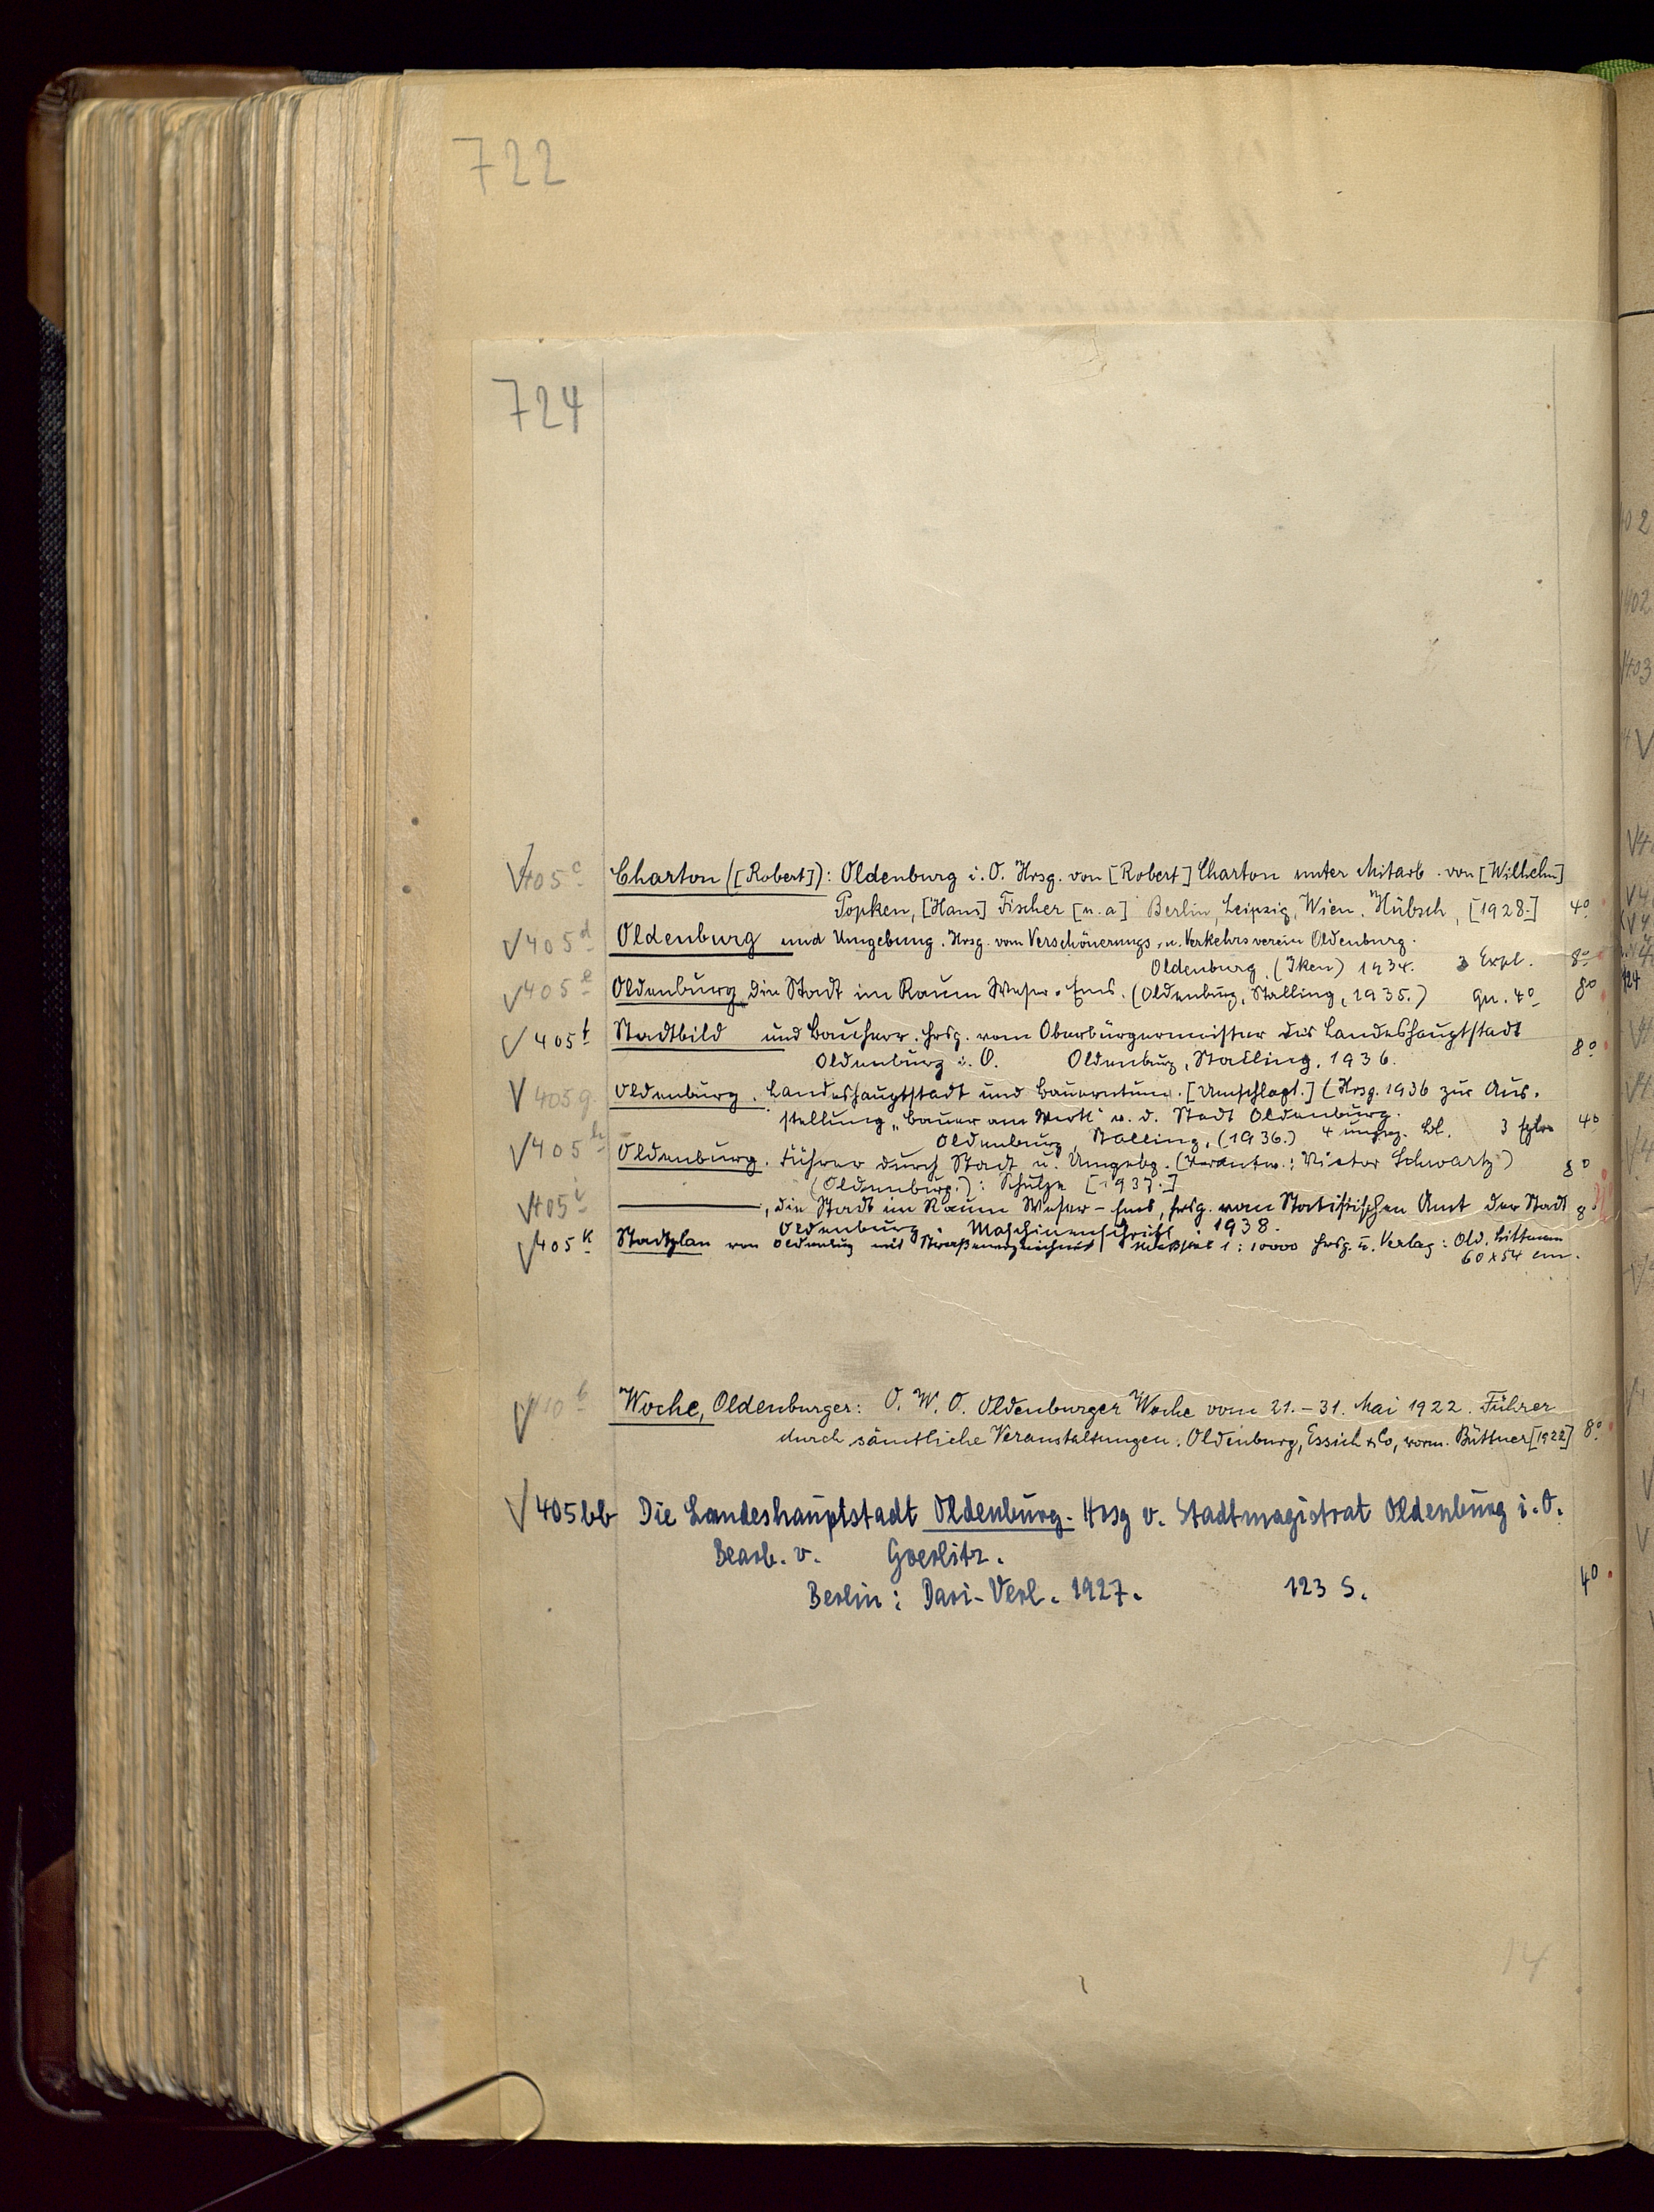 722
724
√405c Charton ([Robert]): Oldenburg i. O. Hrsg. von [Robert] Charton unter Mitarb. von [Wilhelm]
Popken, [Hans] Fischer [u. a] Berlin, Leipzig, Wien. Hübsch, [1928.] 4°
√405d Oldenburg und Umgebung. Hrsg. vom Verschönerungs- u. Verkehrsverein Oldenburg.
Oldenburg, (Iken) 1934. 3 Expl. 8°
√405e Oldenburg die Stadt im Raum Weser-Ems. (Oldenburg, Stalling, 1935.) qu. 4° 8°
√405f Stadtbild und Bauherr. Hrsg. vom Oberbürgermeister der Landeshauptstadt
Oldenburg i. O. Oldenburg, Stalling, 1936. 8°
√405g Oldenburg. Landeshauptstadt und Bauerntum. [Umschlagt.] (Hrsg. 1936 zur Aus-
stellung „Bauer am Werk" v. d. Stadt Oldenburg.
Oldenburg, Stalling, (1936.) 4 ungez. Bl. 3 Explre 4°
√405h Oldenburg. Führer durch Stadt u. Umgebg. (Verantw.: Victor Schwartz) 8°
(Oldenburg.): Schulze [1937.]
√405i ———, die Stadt im Raum Weser-Ems, hrsg. vom Statistischen Amt der Stadt 8
Oldenburg. Maschinenschrift. 1938.
√405k Stadtplan von Oldenburg mit Straßenverzeichnis Maßstab 1:10000 Hrsg. u. Verlag: Old. Littmann
60 x 54 cm.
√410b Woche, Oldenburger: O. W. O. Oldenburger Woche vom 21.–31. Mai 1922. Führer
durch sämtliche Veranstaltungen. Oldenburg, Essich & Co, vorm. Büttner [1922] 8°
√405bb Die Landeshauptstadt Oldenburg. Hrsg v. Stadtmagistrat Oldenburg i. O.
Bearb. v. Goerlitz.
Berlin: Dari-Verl. 1927. 123 S. 4°
14